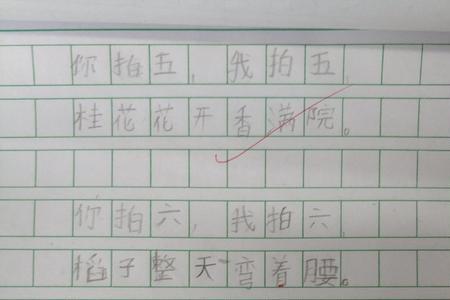 你拍五，我拍五，
桂花花开香满院。
你拍六，我拍六，
稻子整天弯着腰。